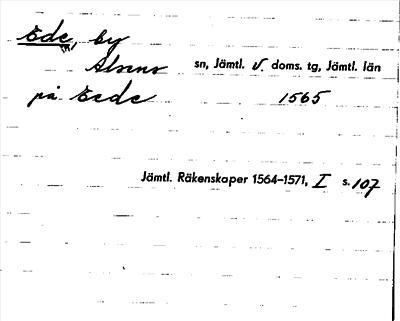 Ede, by
Alsens sn, Jämtl. v. doms. tg, Jämtl. län
på Eede 1565
Jämtl. Räkenskaper 1564–1571, I s. 107